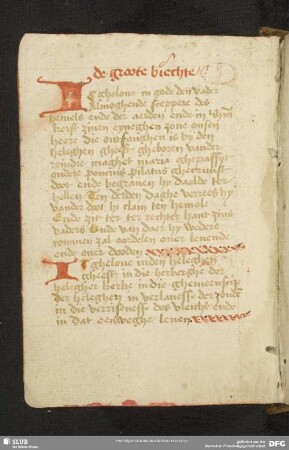 de groote biechte
Ic ghelove in gode den vader
Almoghende sceppere des
hemels ende der aerden ende in ihm
kerst zinen eyneghen zone onsen
heere die ontfanghen is by den
heleghen gheest gheboren vander
reindre maghet maria ghepassyt
ondere poncius pilatus ghecruust
doot ende begraven hy daelde ter
hellen Ten derden daghe verrees hy
vander doot hi clam ten hemele
Ende zit ter rechter hant zins
vaders Ende van daer hy wedere
commen zal oordelen over levende
ende over dooden
Ic ghelove inden heleghen
gheest in die herberghe der
heligher kerke in die ghemeenscip
der heleghen in verlanesse der zonden
in die verrisenesse des vleichs ende
in dat eeuweghe leven
SLUB
DFG